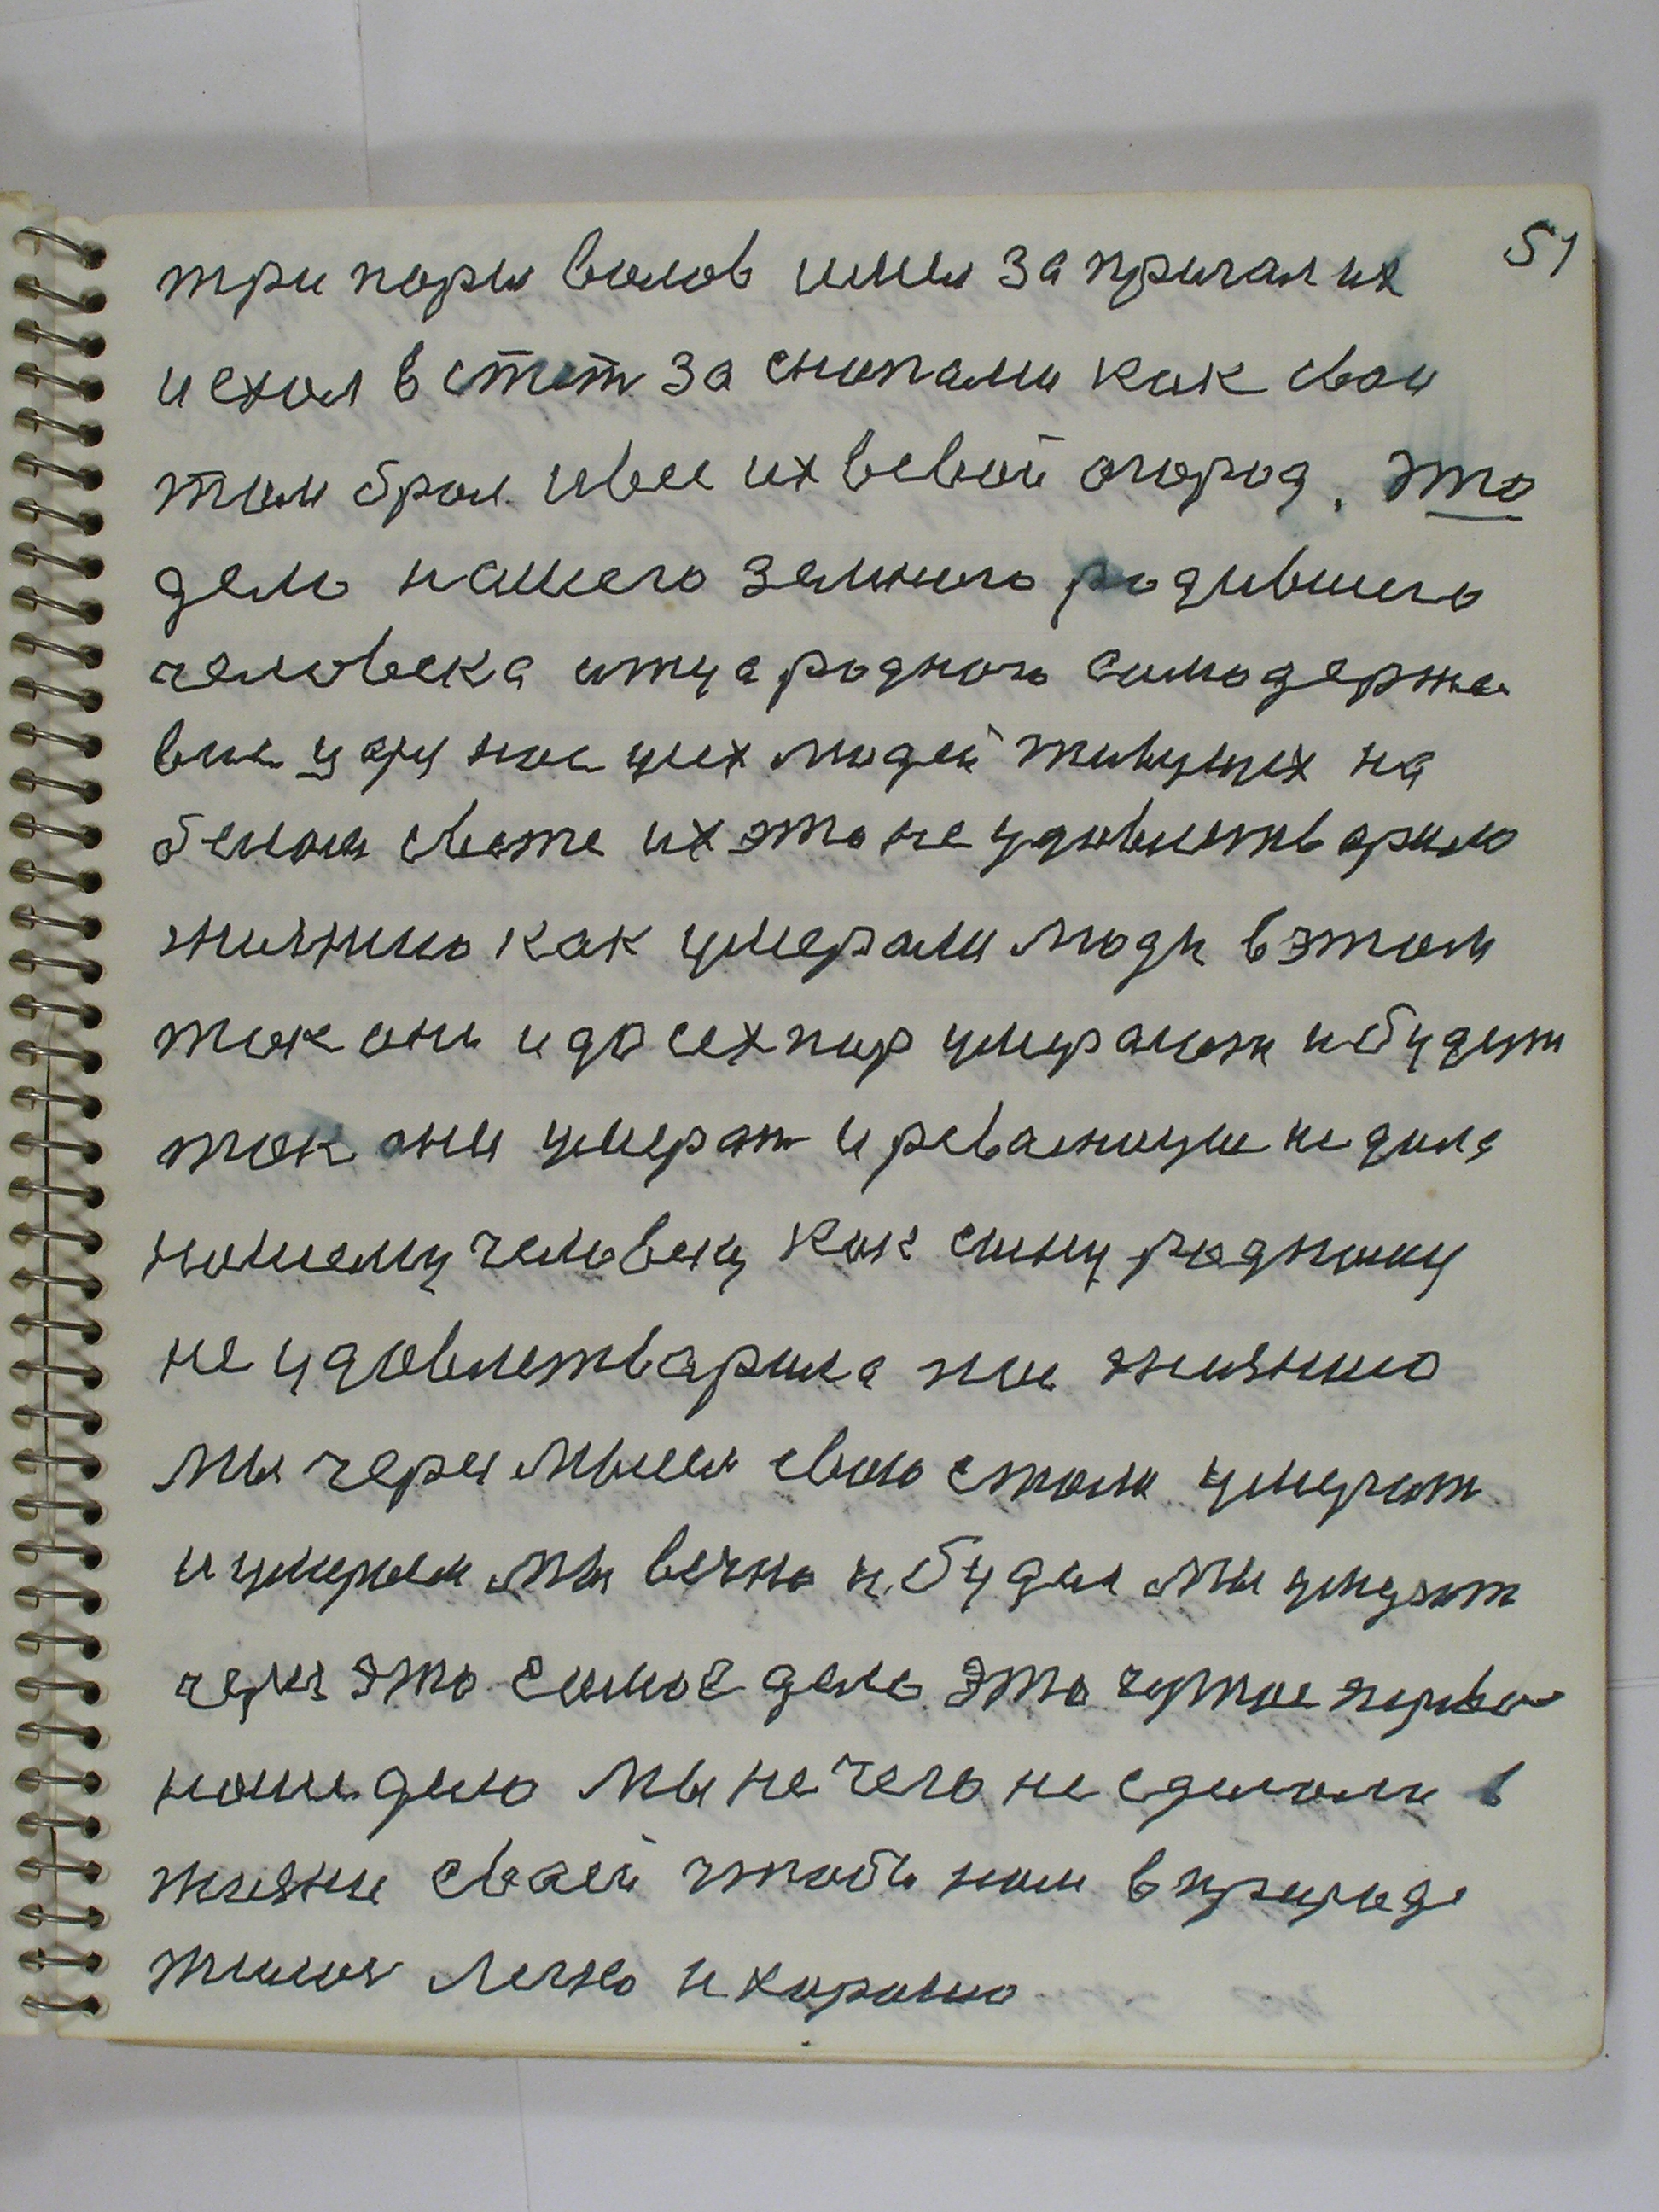 51
три пары валов имел запричал их
и ехал в степ за снопами как свои
там брал ивес их всвой огород. Это
дело нашего земного родившего
человека отца родного самодержа
вие царя нас всех людей живущих на
белом свете их это не удовлетварило
жизнию как умерали люди в этом
так они и до сех пор умирают и будут
так они умерат и революцие не дала
нашему человеку как сыну родному
не удовлетварила нас жизнию
мы через мысел свою стали умерат
и умерли мы вечно и будем мы умерат
через это самое дело это чужое перво
наше дело мы не чего не сделали в
жизни своей чтобы нам в природе
жилося легко и хорошо